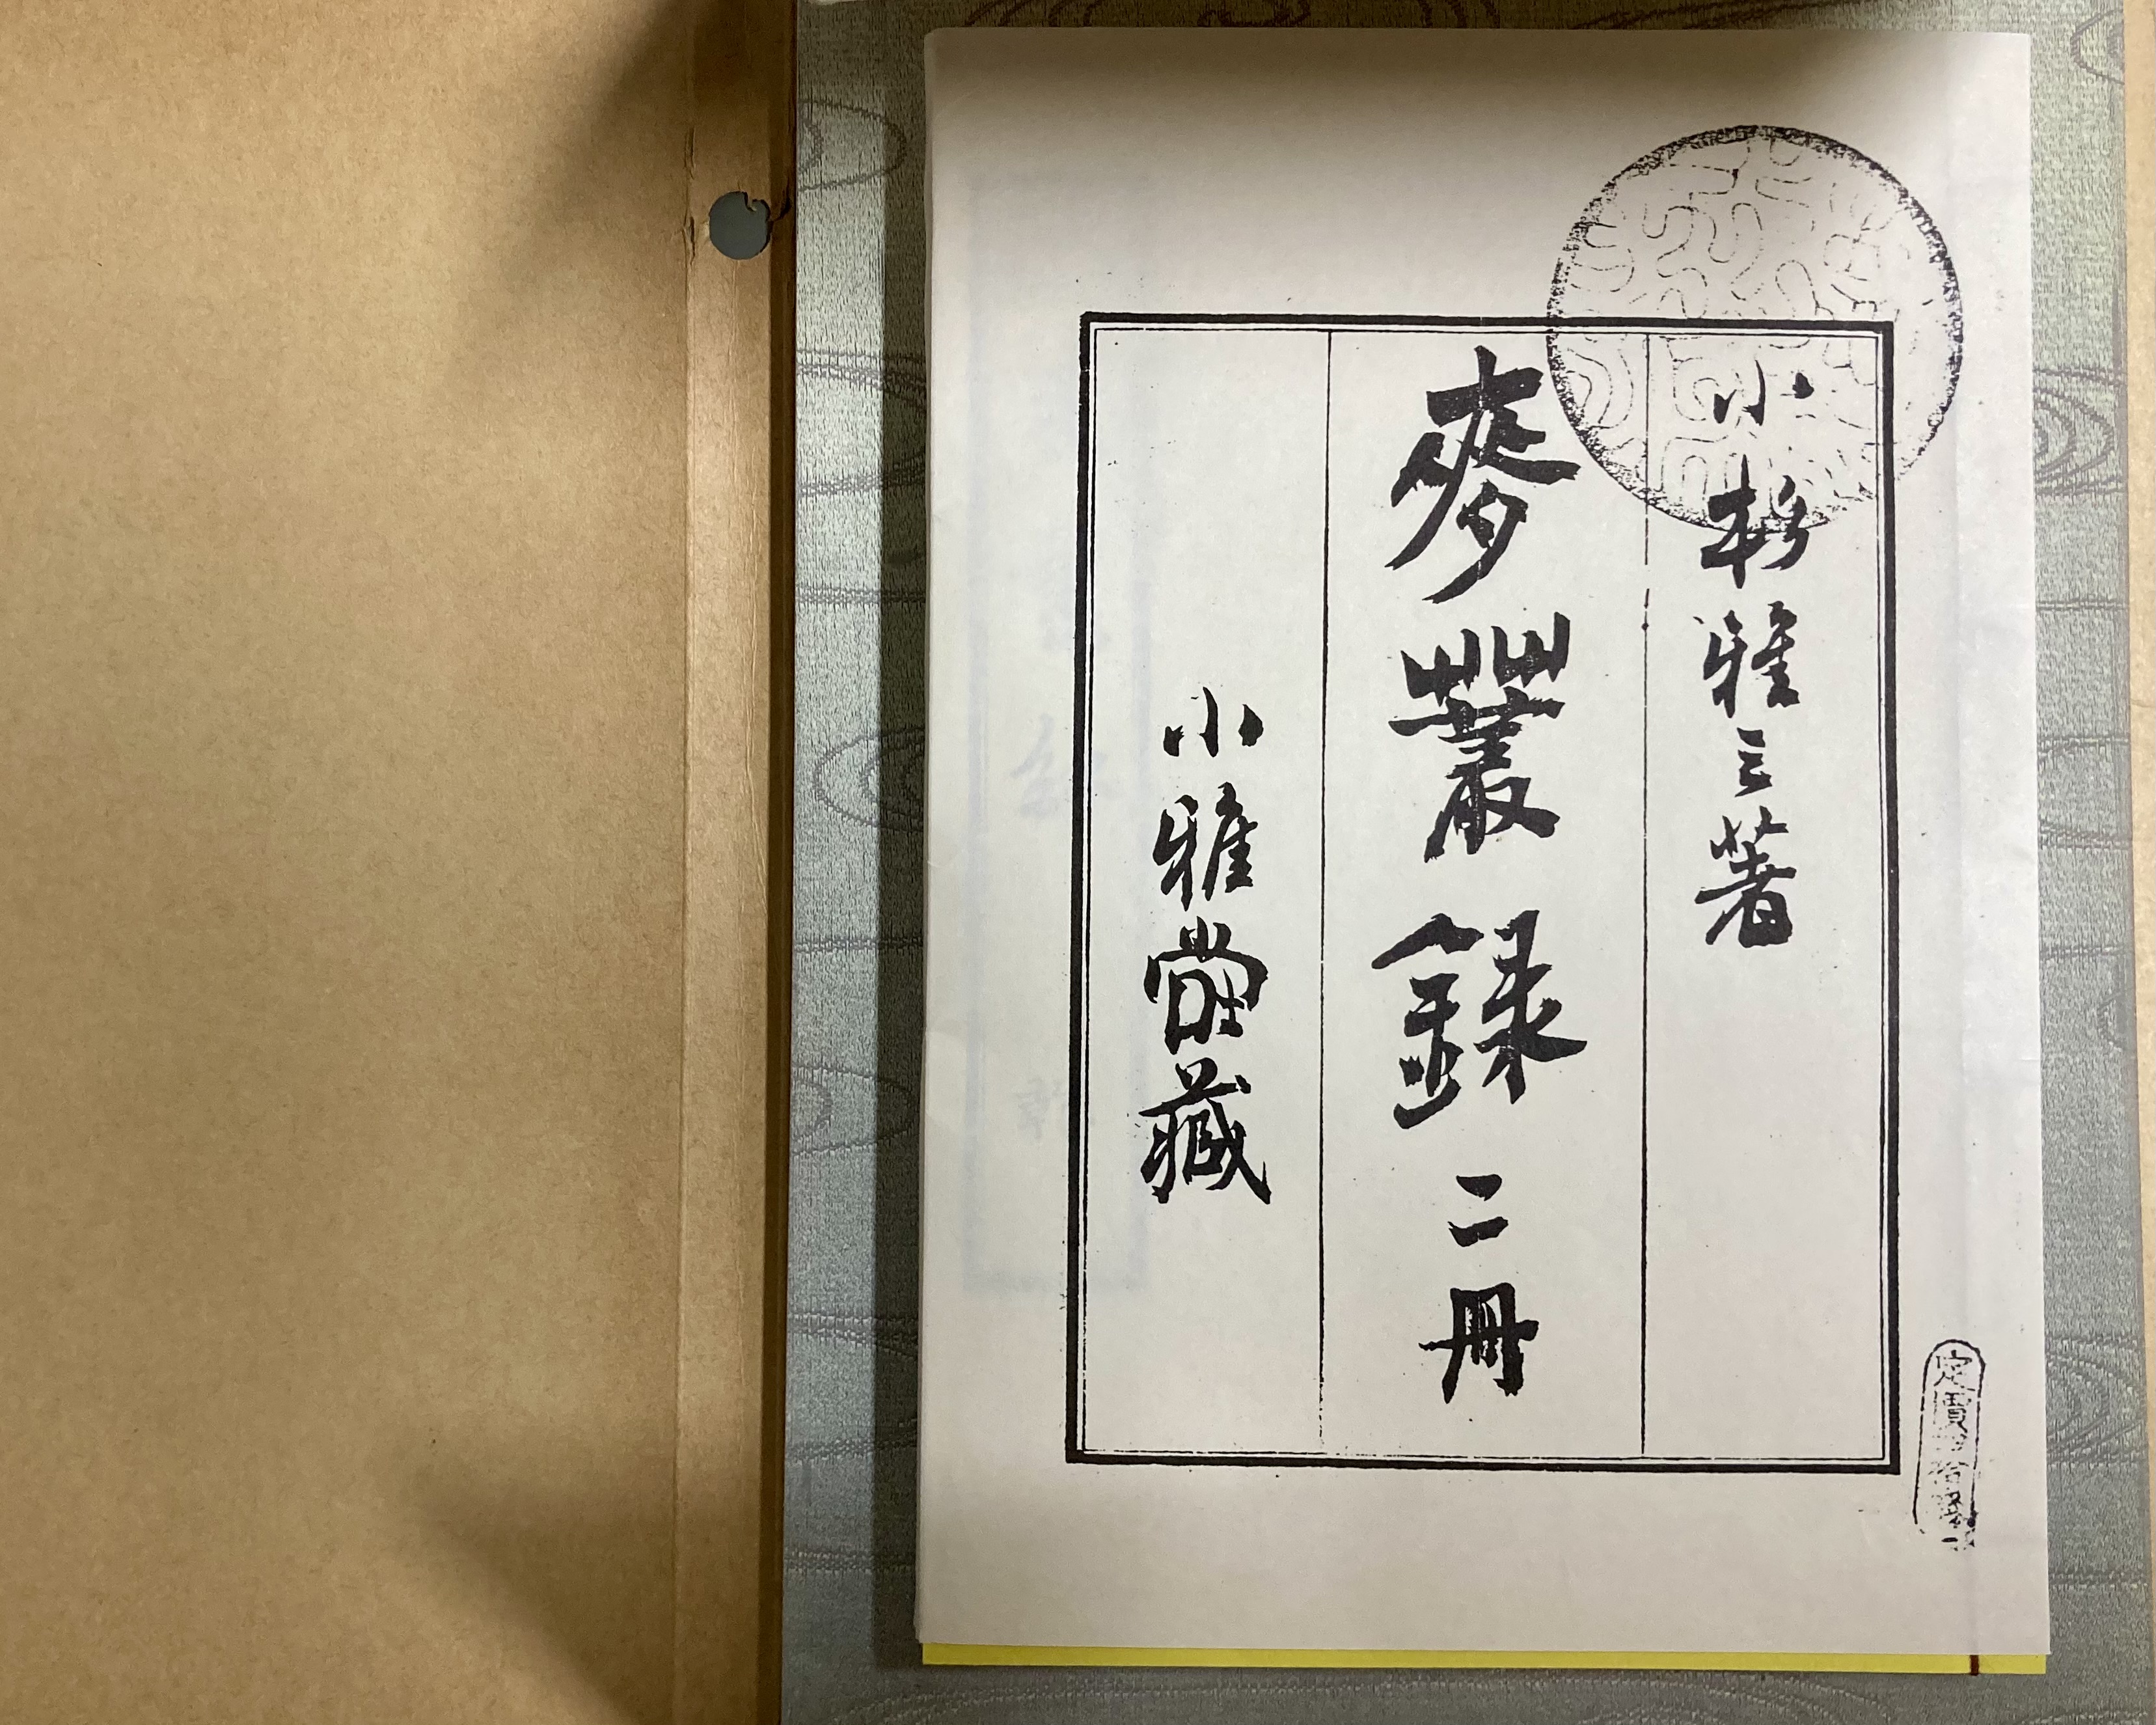 小杉雅三著
麥叢錄二冊
小雅堂藏
定價